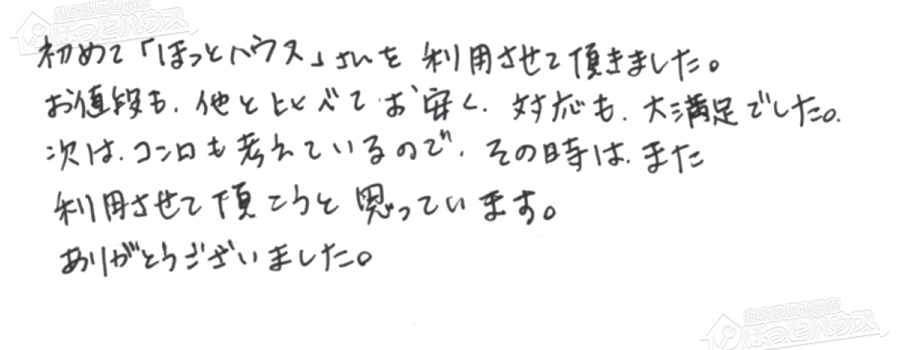 住宅設備専門店
ほっとハウス
初めて「ほっとハウス」さんを 利用させて頂きました。
お値段も、他と比べてお安く、対応も、大満足でした。
次は、コンロも考えているので、その時は、また
利用させて頂こうと思っています。
ありがとうございました。
住宅設備専門店
ほっとハウス